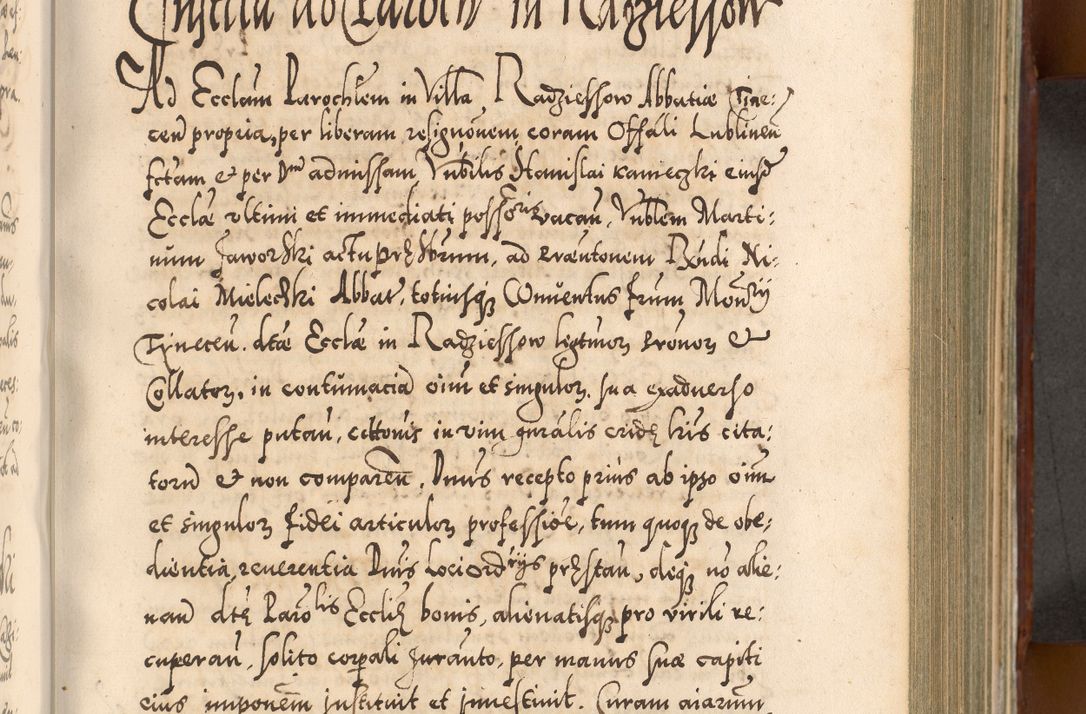 Institu ad Ecclam Paroch in Radziessow
Ad Ecclam Parochlem in Villa Radziessow Abbatiæ Tine:
cen propria, per liberam resignonem coram Offali Lublinen
fctam et per Dnm admissam Vnblis Stanislai Kamieczki eiusd
Ecclæ vltimi et immediati possoris vacan, Vnblem Marti:
num Jaworski actu prȩsbrum, ad præntonem Rxndi Ni:
colai Mielechki Abbat, totiusq Conventus frum Monrij
Tynecen. dtæ Ecclæ in Radziessow legtimor pronor et
Collator, in contumacia oium et singulor sua exadverso
interesse putan, cittonis in vim gnralis cridȩ lris cita:
torum et non comparen, Dnus recepto prius ab ipso oium
et singulor fidei articulor professioe, tum quoq de obe:
dientia, reverentia Dnis Loci Ordrijs prȩstan, deq no alie:
nan dtȩ Parolis Eccliȩ bonis, alienatisq pro virili re:
cuperan, solito corpali Juranto, per manus suæ capiti
eius imponem instituit et investivit. Curam aiarum